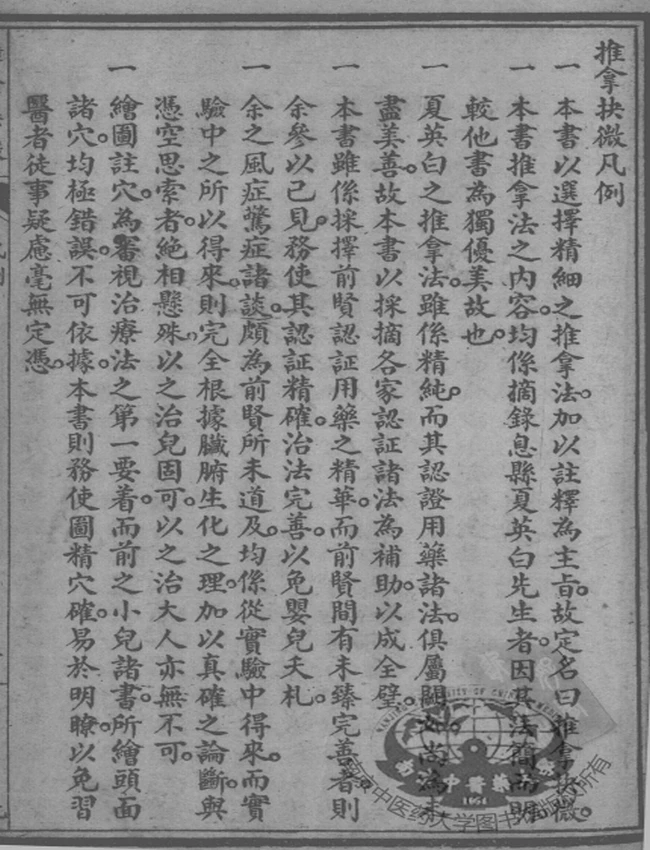 推拿抉微凡例
一 本書以選擇精細之推拿法。加以註釋為主旨。故定名曰推拿抉微。
一 本書推拿法之內容。均係摘錄息縣夏英白先生者。因其法簡而明
較他書為獨優美故也。
一 夏英白之推拿法。雖係精純。而其認證用藥諸法。俱屬闕如。尚為未
盡美善。故本書以採摘各家認証諸法為補助。以成全璧。
一 本書雖係採擇前賢認証用藥之精華。而前賢間有未臻完善者。則
余參以己見。務使其認証精確。治法完善。以免嬰兒夭札。
一 余之風症驚症諸談。頗為前賢所未道及。均係從實驗中得來。而實
驗中之所以得來。則完全根據臟腑生化之理。加以真確之論斷。與
憑空思索者。絕相懸殊。以之治兒固可。以之治大人亦無不可。
一 繪圖註穴。為審視治療法之第一要着。而前之小兒諸書。所繪頭面
諸穴。均極錯誤。不可依據。本書則務使圖精穴確。易於明瞭。以免習
醫者徒事疑慮毫無定憑。
南京中医药大学图书馆
所有